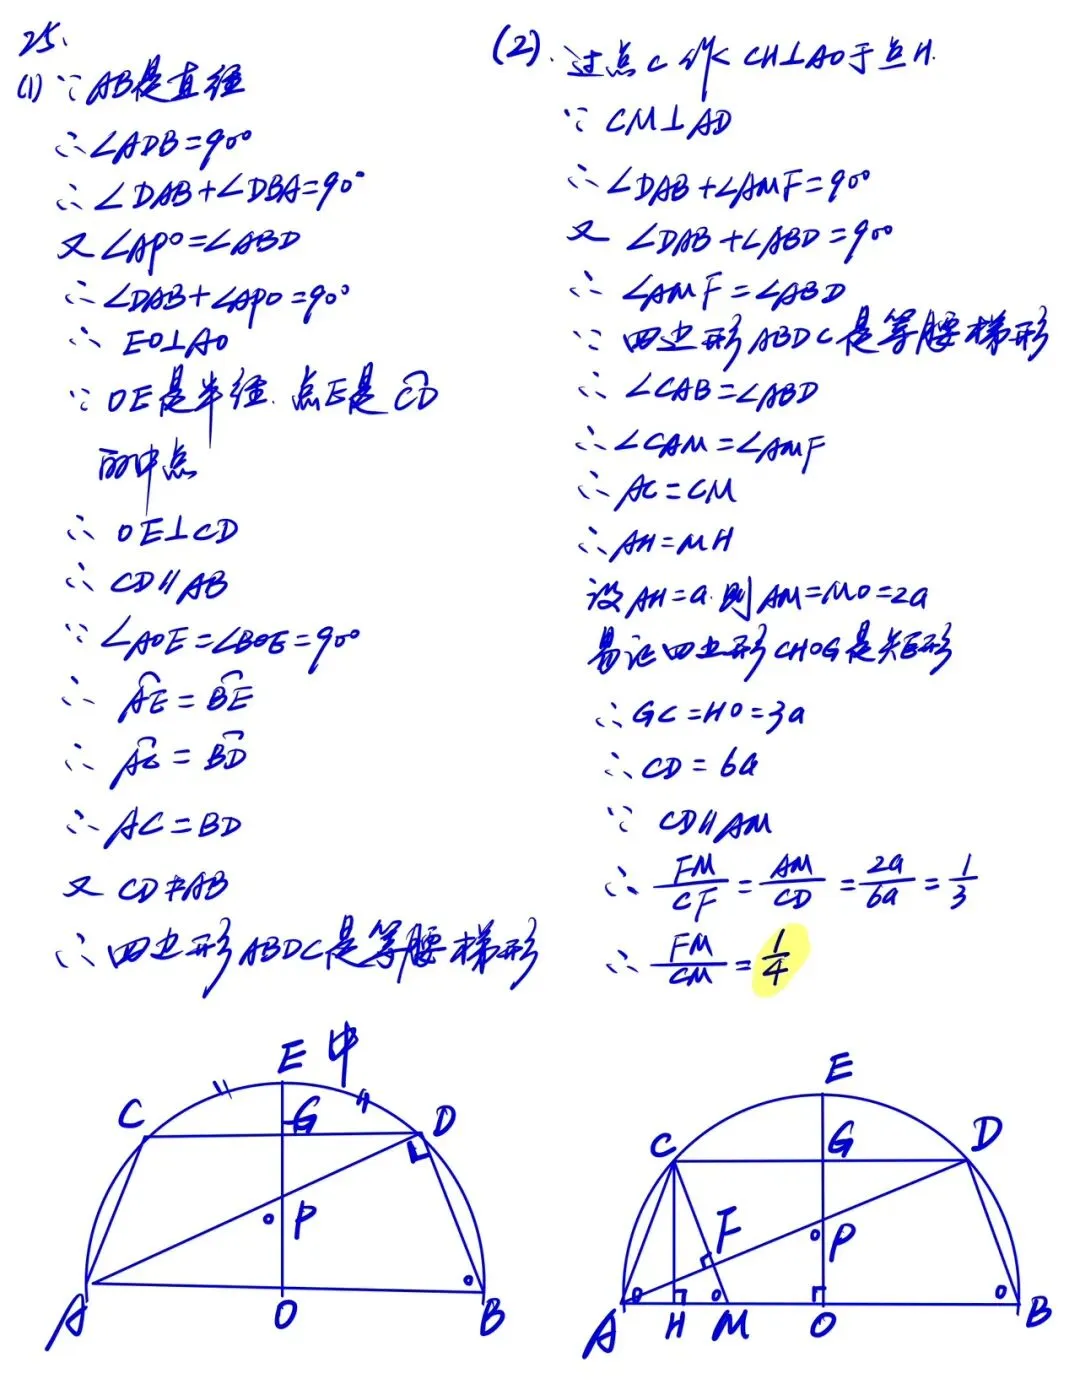 25.
(1) ∵ AB是直径
∴ ∠ADB=90°
∴ ∠DAB+∠DBA=90°
又 ∠APO=∠ABD
∴ ∠DAB+∠APO=90°
∴ EO⊥AO
∵ OE是半径. 点E是 \overset{⌒}{CD}
的中点
∴ OE⊥CD
∴ CD∥AB
∵ ∠AOE=∠BOE=90°
∴ \overset{⌒}{AE} = \overset{⌒}{BE}
∴ \overset{⌒}{AC} = \overset{⌒}{BD}
∴ AC=BD
又 CD≠AB
∴ 四边形ABDC是等腰梯形
(2). 过点C作 CH⊥AO于点H.
∵ CM⊥AD
∴ ∠DAB+∠AMF=90°
又 ∠DAB+∠ABD=90°
∴ ∠AMF=∠ABD
∵ 四边形ABDC是等腰梯形
∴ ∠CAB=∠ABD
∴ ∠CAM=∠AMF
∴ AC=CM
∴ AH=MH
设AH=a. 则AM=MO=2a
易证四边形CHOG是矩形
∴ GC=HO=3a
∴ CD=6a
∵ CD∥AM
∴ FM/CF = AM/CD = 2a/6a = 1/3
∴ FM/CM = 1/4
E 中
C G D
P
A O B
E
C G D
F P
A H M O B